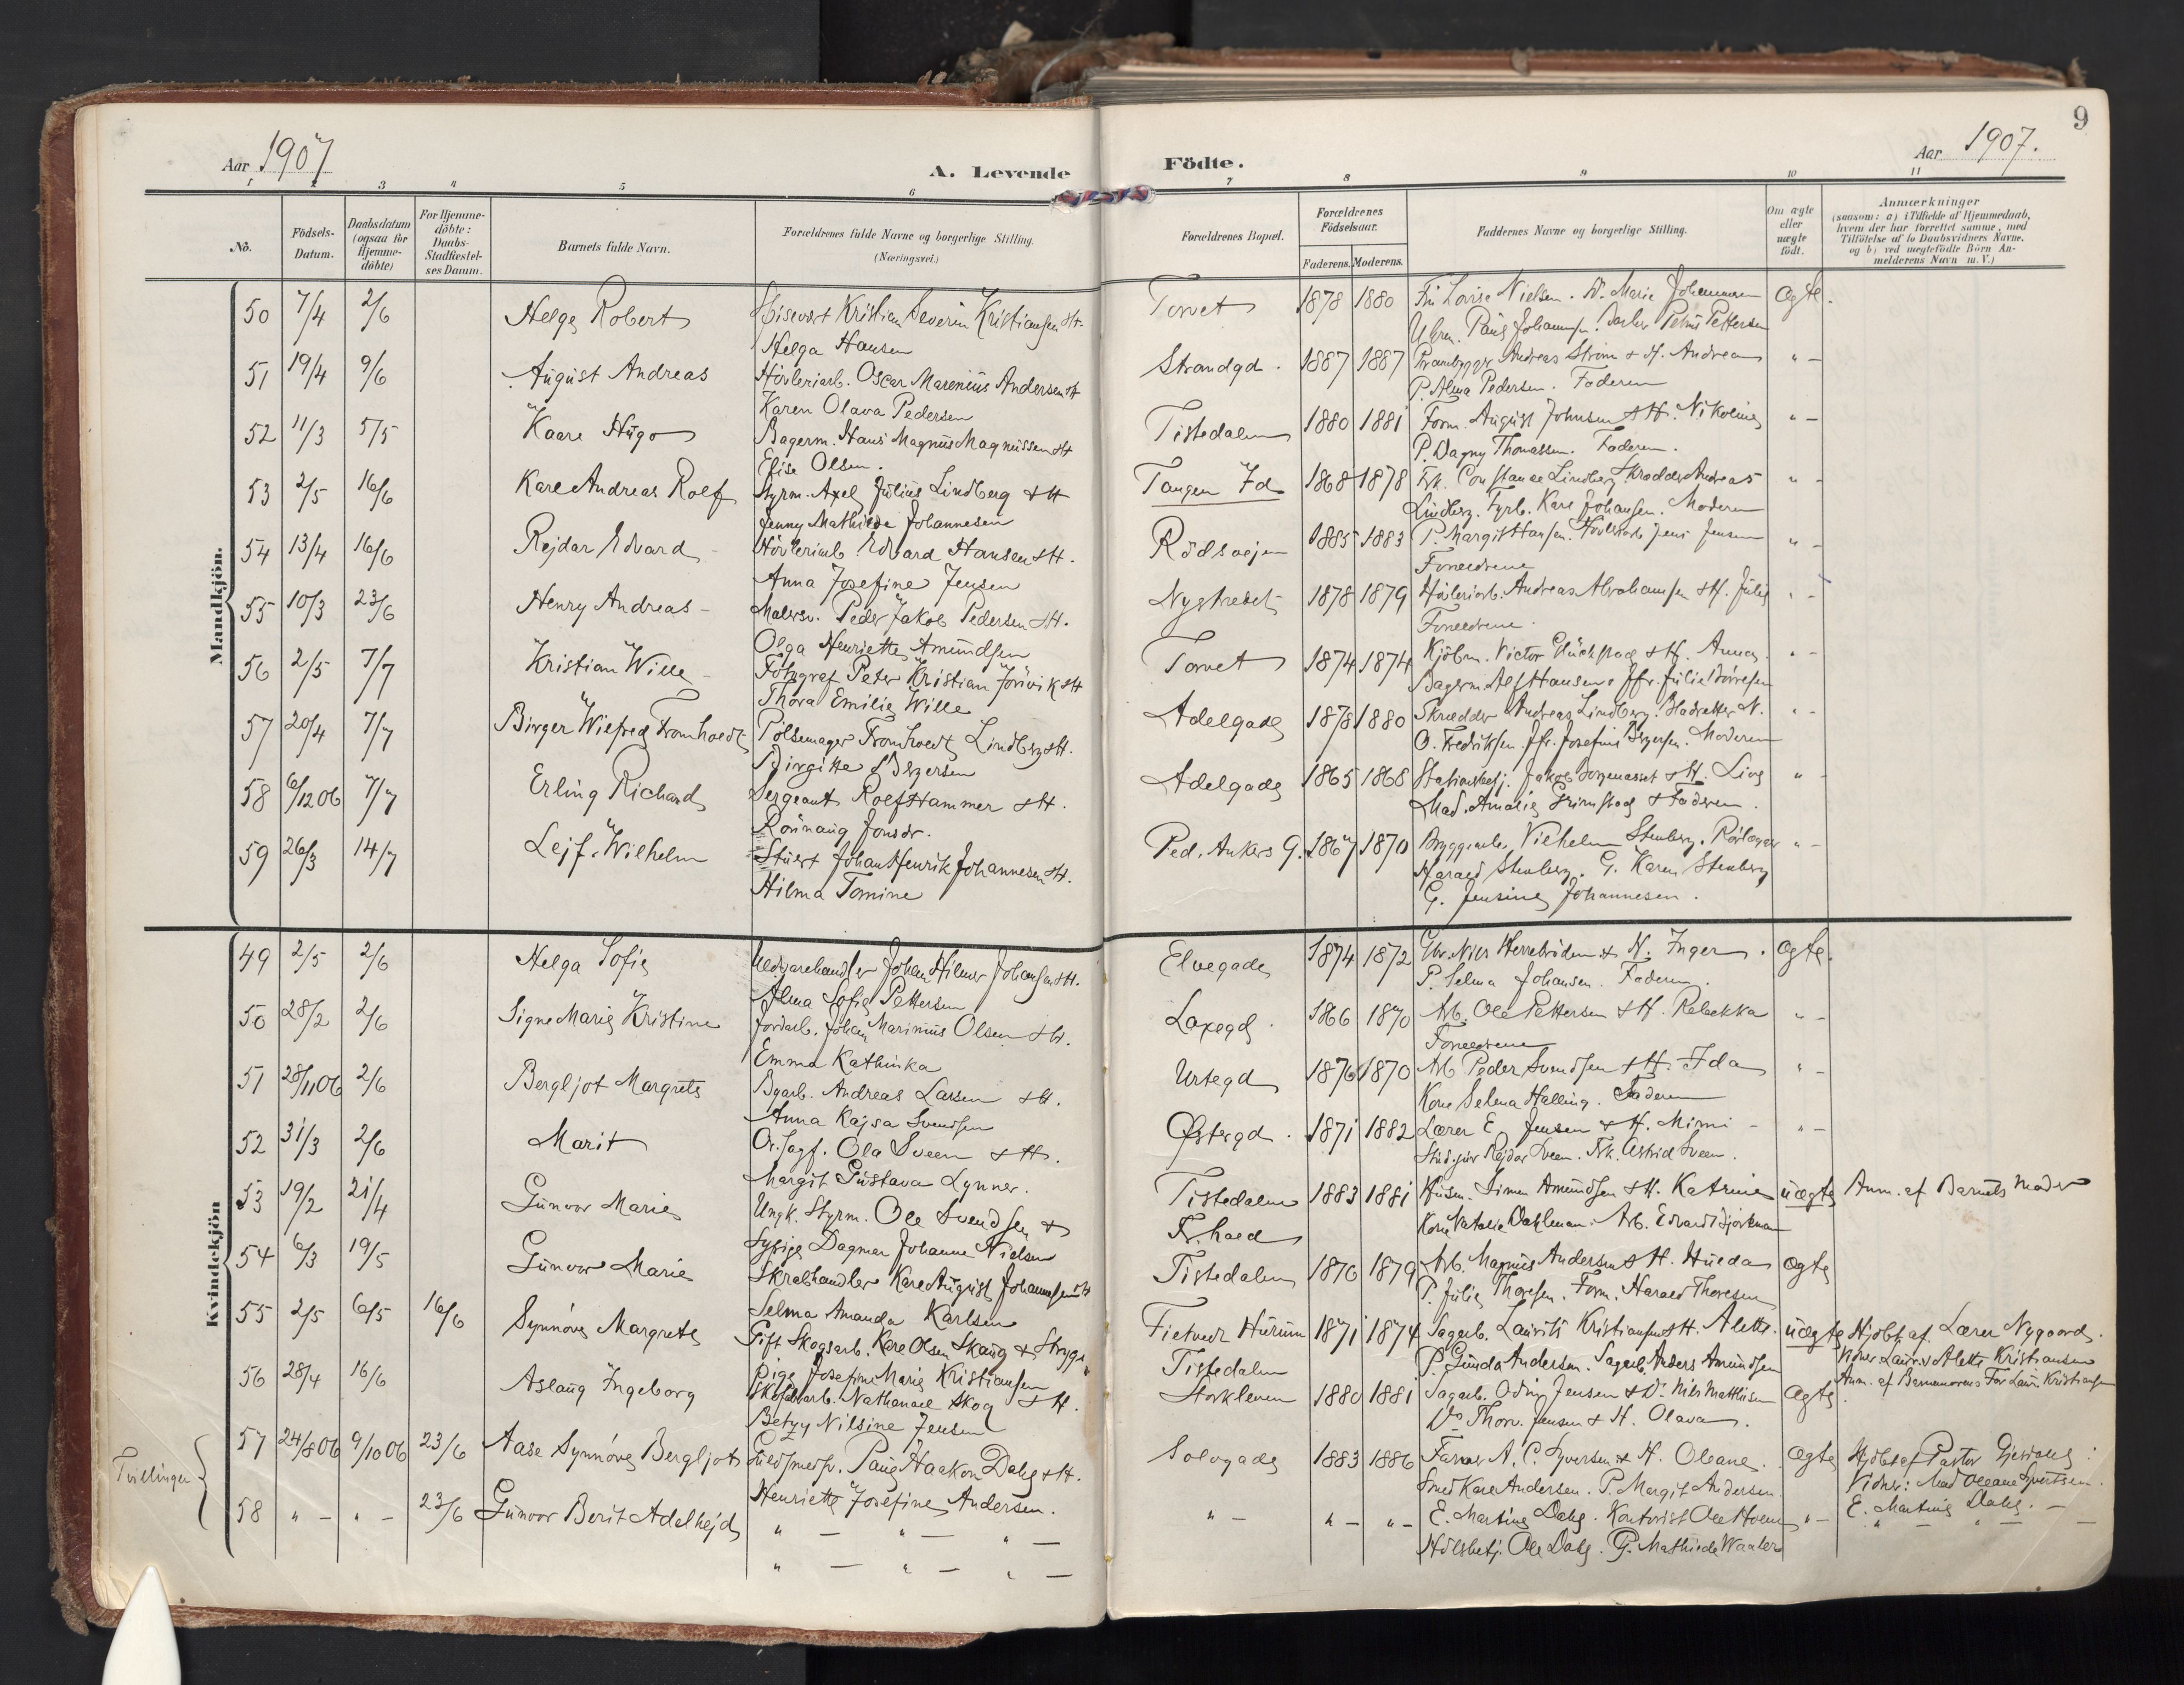 9
Aar 1907
A. Levende
Födte.
Aar 1907.
1 2 3 4 5 6 7 8 9 10 11
No.
Födsels-Datum.
Daabsdatum (ogsaa for Hjemme-döbte)
For Hjemme-döbte: Daabs-Stadfæstel-ses Datum.
Barnets fulde Navn.
Forældrenes fulde Navne og borgerlige Stilling. (Næringsvei.)
Forældrenes Bopæl.
Forældrenes Födselsaar.
Faderens. Moderens.
Faddernes Navne og borgerlige Stilling.
Om ægte eller uægte födt.
Anmærkninger
(saasom: a) i Tilfælde af Hjemmedaab, hvem der har forrettet samme, med Tilföielse af to Daabsvidners Navne, og b) ved uægtefödte Börn An-melderens Navn m. V.)
Mandkjön.
50 7/4 2/6 Helge Robert Kristian Severin Kristiansen & H. Torvet 1878 1880 Louise Nielsen. Marie Johannesen Ægte.
Helga Hansen Johannsen. Pettersen
51 19/4 9/6 August Andreas Hövleriarb. Oscar Marenius Andersen & H. Strandgd. 1887 1887 Andreas Ström & H. Andrea " -
Karen Olava Pedersen P. Alma Pedersen. Faderen
52 11/3 5/5 Kaare Hugo Bagerm. Hans Magnus Magnussen & H. Tistedalen 1880 1881 Form. August Johnsen & H. Nikoline " -
Elise Olsen. P. Dagny Thomassen. Faderen.
53 2/5 16/6 Karl Andreas Rolf Styrm. Axel Julius Lindberg & H. Tangen Id. 1868 1878 Frk. Constance Lindberg Skrædder Andreas " -
Jenny Mathilde Johannesen Lindberg. Fyrb. Karl Johansen. Moderen
54 13/4 16/6 Rejdar Edvard - Hövleriarb. Edvard Hansen & H. Rödsvejen 1885 1883 P. Margit Hansen. Jens Jensen " -
Anna Josefine Jensen Forældrene
55 10/3 23/6 Henry Andreas - Malersv. Peder Jakob Pedersen & H. Nystredet 1878 1879 Hövleriarb. Andreas Abrahamsen & H. Julie " -
Olga Henriette Amundsen Forældrene.
56 2/5 7/7 Kristian Wille - Fotograf Peter Kristian Jörvik & H. Torvet 1874 1874 Kjöbm. Victor Glückstad & H. Anna. " -
Thora Emilie Wille Bagerm. Alf Hansen & Jfr. Julie
57 20/4 7/7 Birger Wilfred Tromholdt Pölsemager Tromholdt Lindberg & H. Adelgade 1878 1880 Skrædder Andreas Lindberg. N. " -
Birgitte Börgersen O. Fredriksen. Jfr. Josefine Börgersen. Moderen
58 6/12 06 7/7 Erling Richard Sergeant Rolf Hammer & H. Adelgade 1865 1868 Jakob & H. Live " -
Rönnaug Jonsdr. Mad. Amalie Grimstad & Faderen.
59 26/3 14/7 Lejf Wilhelm Stuert Johan Henrik Johannesen & H. Ped. Ankers G. 1867 1870 Bryggearb. Vilhelm Stenberg. Rörlægger " -
Hilma Tomine Harald Stenberg. G. Karen Stenberg
G. Jensine Johannesen.
Kvindekjön
49 2/5 2/6 Helga Sofie Johan Hilmer Johansen & H. Elvegade 1874 1872 Gbr. Nils Herrebröden & H. Inger. Ægte.
Alma Sofie Pettersen P. Selma Johansen. Faderen.
50 28/2 2/6 Signe Marie Kristine Jordarb. Johan Marinius Olsen & H. Laxegd. 1866 1870 Arb. Ole Pettersen & H. Rebekka " -
Emma Kathinka Forældrene
51 28/11 06 2/6 Bergljot Margrete Byarb. Andreas Larsen & H. Urtegd 1876 1870 Arb Peder Svendsen & H. Ida " -
Anna Kajsa Svendsen Kone Selma Halling. Faderen
52 31/3 2/6 Marit O.r.sagf. Ola Sveen & H. Østergd. 1871 1882 Lærer E. Jensen & H. Mimi - " -
Margit Gustava Lynner. Stud. jur Rejdar Sveen. Frk. Astrid Sveen.
53 19/2 21/4 Gunvor Marie Ungk. Styrm. Ole Svendsen & Tistedalen 1883 1881 Husm. Simen Amundsen & H. Katrine uægte Anm. af Barnets Moder
Sypige Dagmar Johanne Nielsen Fr.hald Kone Natalie Dahlman. Arb. Edvard Björkman
54 6/3 19/5 Gunvor Marie Skrabhandler Karl August Johannsen & H. Tistedalen 1876 1879 Arb. Magnus Andersen & H. Hulda Ægte
Selma Amanda Karlsen P. Julie Thoresen. Form. Harald Thoresen
55 2/5 6/5 16/6 Synnöve Margrete Gift Skogsarb. Karl Olsen Skaug & Stryge- Filtvedt Hurum 1871 1874 Sagarb. Laurits Kristiansen & H. Alette. uægte Hjdbt. af Lærer Nygaard.
pige Josefine Marie Kristiansen Tistedalen P. Gunda Andersen. Sagarb. Anders Amundsen Vidner Laur. & Alette Kristiansen
Anm. af Barnemorens Far Laur. Kristiansen
56 28/4 16/6 Aslaug Ingeborg Nathanael Skog & H. Storkleven 1880 1881 Sagarb. Oding Jensen & Do Nils Matthisen Ægte
Betzy Nilsine Jensen Do Thorv. Jensen & H. Olava.
Tvillinger
57 24/8 06 9/10 06 23/6 Aase Synnöve Bergljot Guldsmedsv. Paul Haakon Dahl & H. Solvgade 1883 1886 Farver A. C. Syversen & H. Oleane. Ægte Hjdbt af Pastor
Henriette Josefine Andersen. Smed Karl Andersen. P. Margit Andersen. Vidner: Mad Oleane Syvertsen.
58 " - " - 23/6 Gunvor Berit Adelhejd " - " - " - " - " - " - E. Martine Dahl. Kontorist Ole Holm " - E. Martine Dahl. -
" - " - " - Ole Dahl. P. Mathilde Waaler